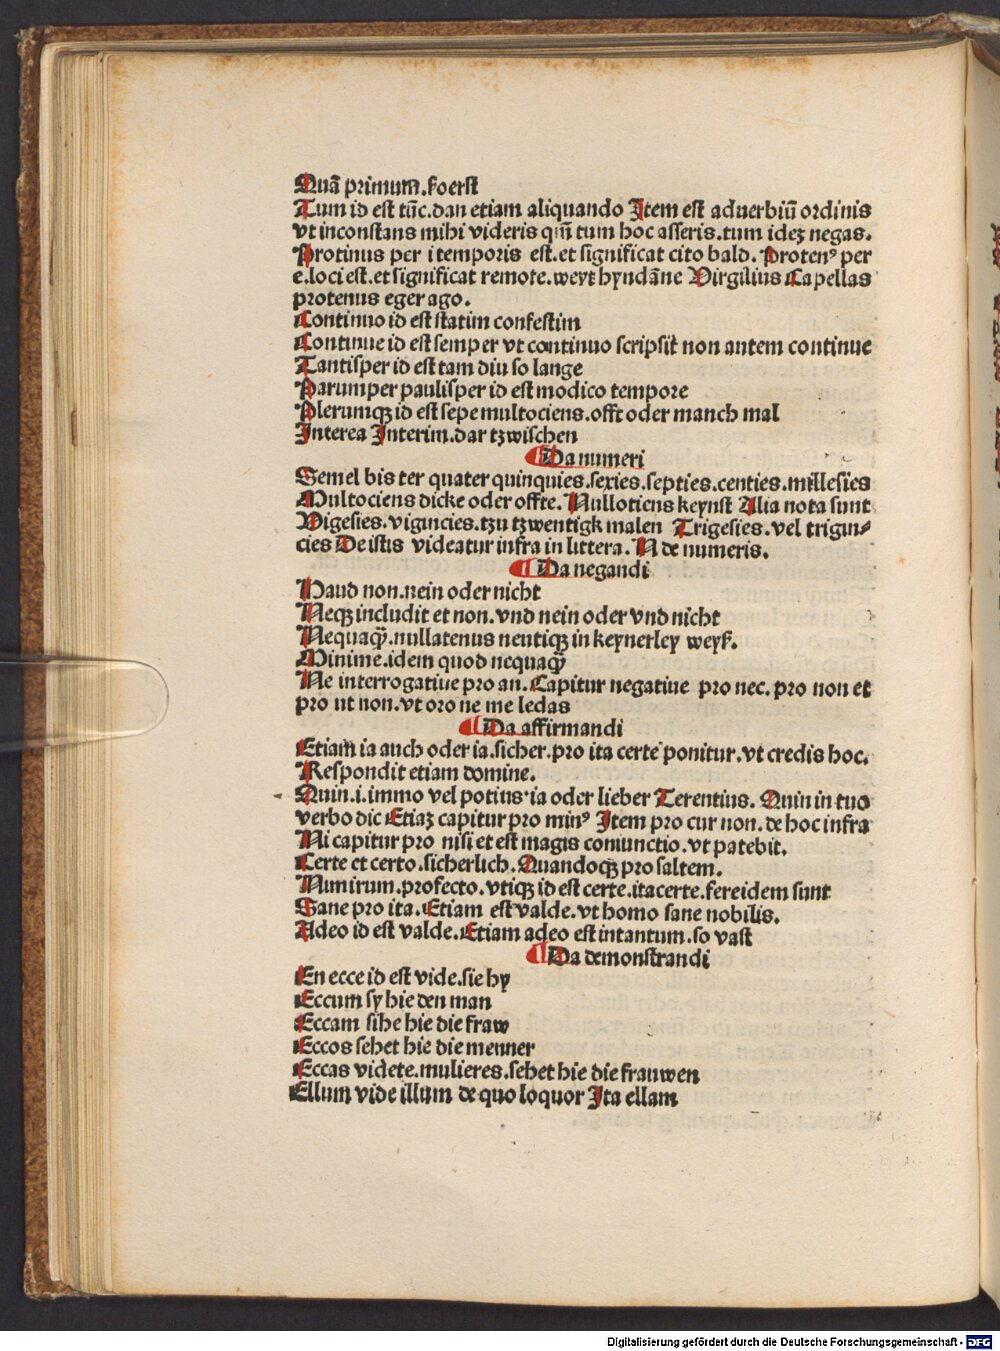 Quā primum.foerst
Tum id est tūc.dan etiam aliquando Item est aduerbiū ordinis
vt inconstans mihi videris qm̄ tum hoc asseris.tum idez negas.
Protinus per i temporis est.et significat cito bald. Protenꝰ per
e.loci est.et significat remote.weyt hyndāne Virgilius Capellas
protenus eger ago.
Continuo id est statim confestim
Continue id est semper vt continuo scripsit non autem continue
Tantisper id est tam diu so lange
Parumper paulisper id est modico tempore
Plerumqꝫ id est sepe multociens.offt oder manch mal
Interea Interim.dar tzwischen
¶ Da numeri
Semel bis ter quater quinquies.sexies.septies.centies.millesies
Multociens dicke oder offte. Nullotiens keynst Alia nota sunt
Vigesies.vigincies.tzu tzwentigk malen Trigesies.vel trigin⸗
cies De istis videatur infra in littera. N de numeris.
¶ Da negandi
Haud non.nein oder nicht
Neqꝫ includit et non.vnd nein oder vnd nicht
Nequaqꝫ̄.nullatenus neutiqꝫ in keynerley weyß.
Minime.idem quod nequaqꝫ̄
Ne interrogatiue pro an. Capitur negatiue pro nec. pro non et
pro ut non.vt oro ne me ledas
¶ Da affirmandi
Etiam ia auch oder ia.sicher.pro ita certe ponitur.vt credis hoc.
Respondit etiam domine.
Quin.i.immo vel potius·ia oder lieber Terentius. Quin in tuo
verbo dic Etiaz capitur pro minꝰ Item pro cur non. de hoc infra
Ni capitur pro nisi et est magis coniunctio.vt patebit.
Certe et certo.sicherlich. Quandoqꝫ pro saltem.
Numirum.profecto.vtiqꝫ id est certe.itacerte.fereidem sunt
Sane pro ita. Etiam est valde.vt homo sane nobilis.
Adeo id est valde.Etiam adeo est intantum.so vast
¶ Da demonstrandi
En ecce id est vide.sie hy
Eccum sy hie den man
Eccam sihe hie die fraw
Eccos sehet hie die menner
Eccas videte.mulieres.sehet hie die frauwen
Ellum vide illum de quo loquor Ita ellam
Digitalisierung gefördert durch die Deutsche Forschungsgemeinschaft - DFG